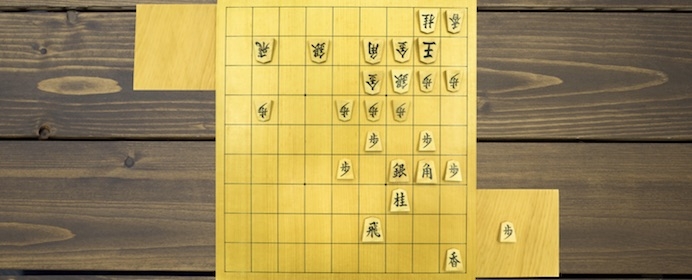 桂 香
飛 銀 角 金 王
金 銀 歩 歩
歩 歩 歩 歩
歩 歩
歩 銀 角 歩
桂
飛 歩
香